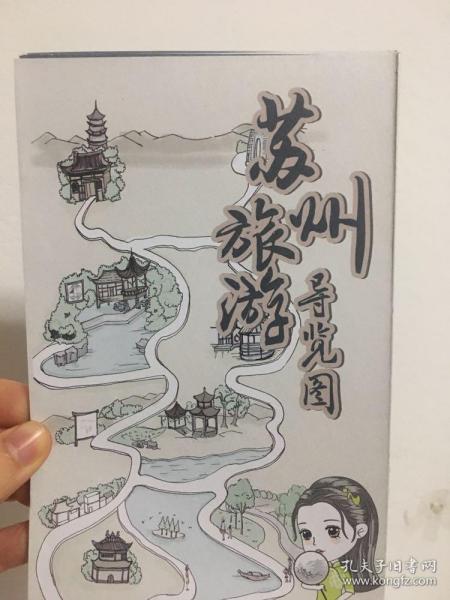 苏州
旅游
导览图
孔夫子旧书网
www.kongfz.com